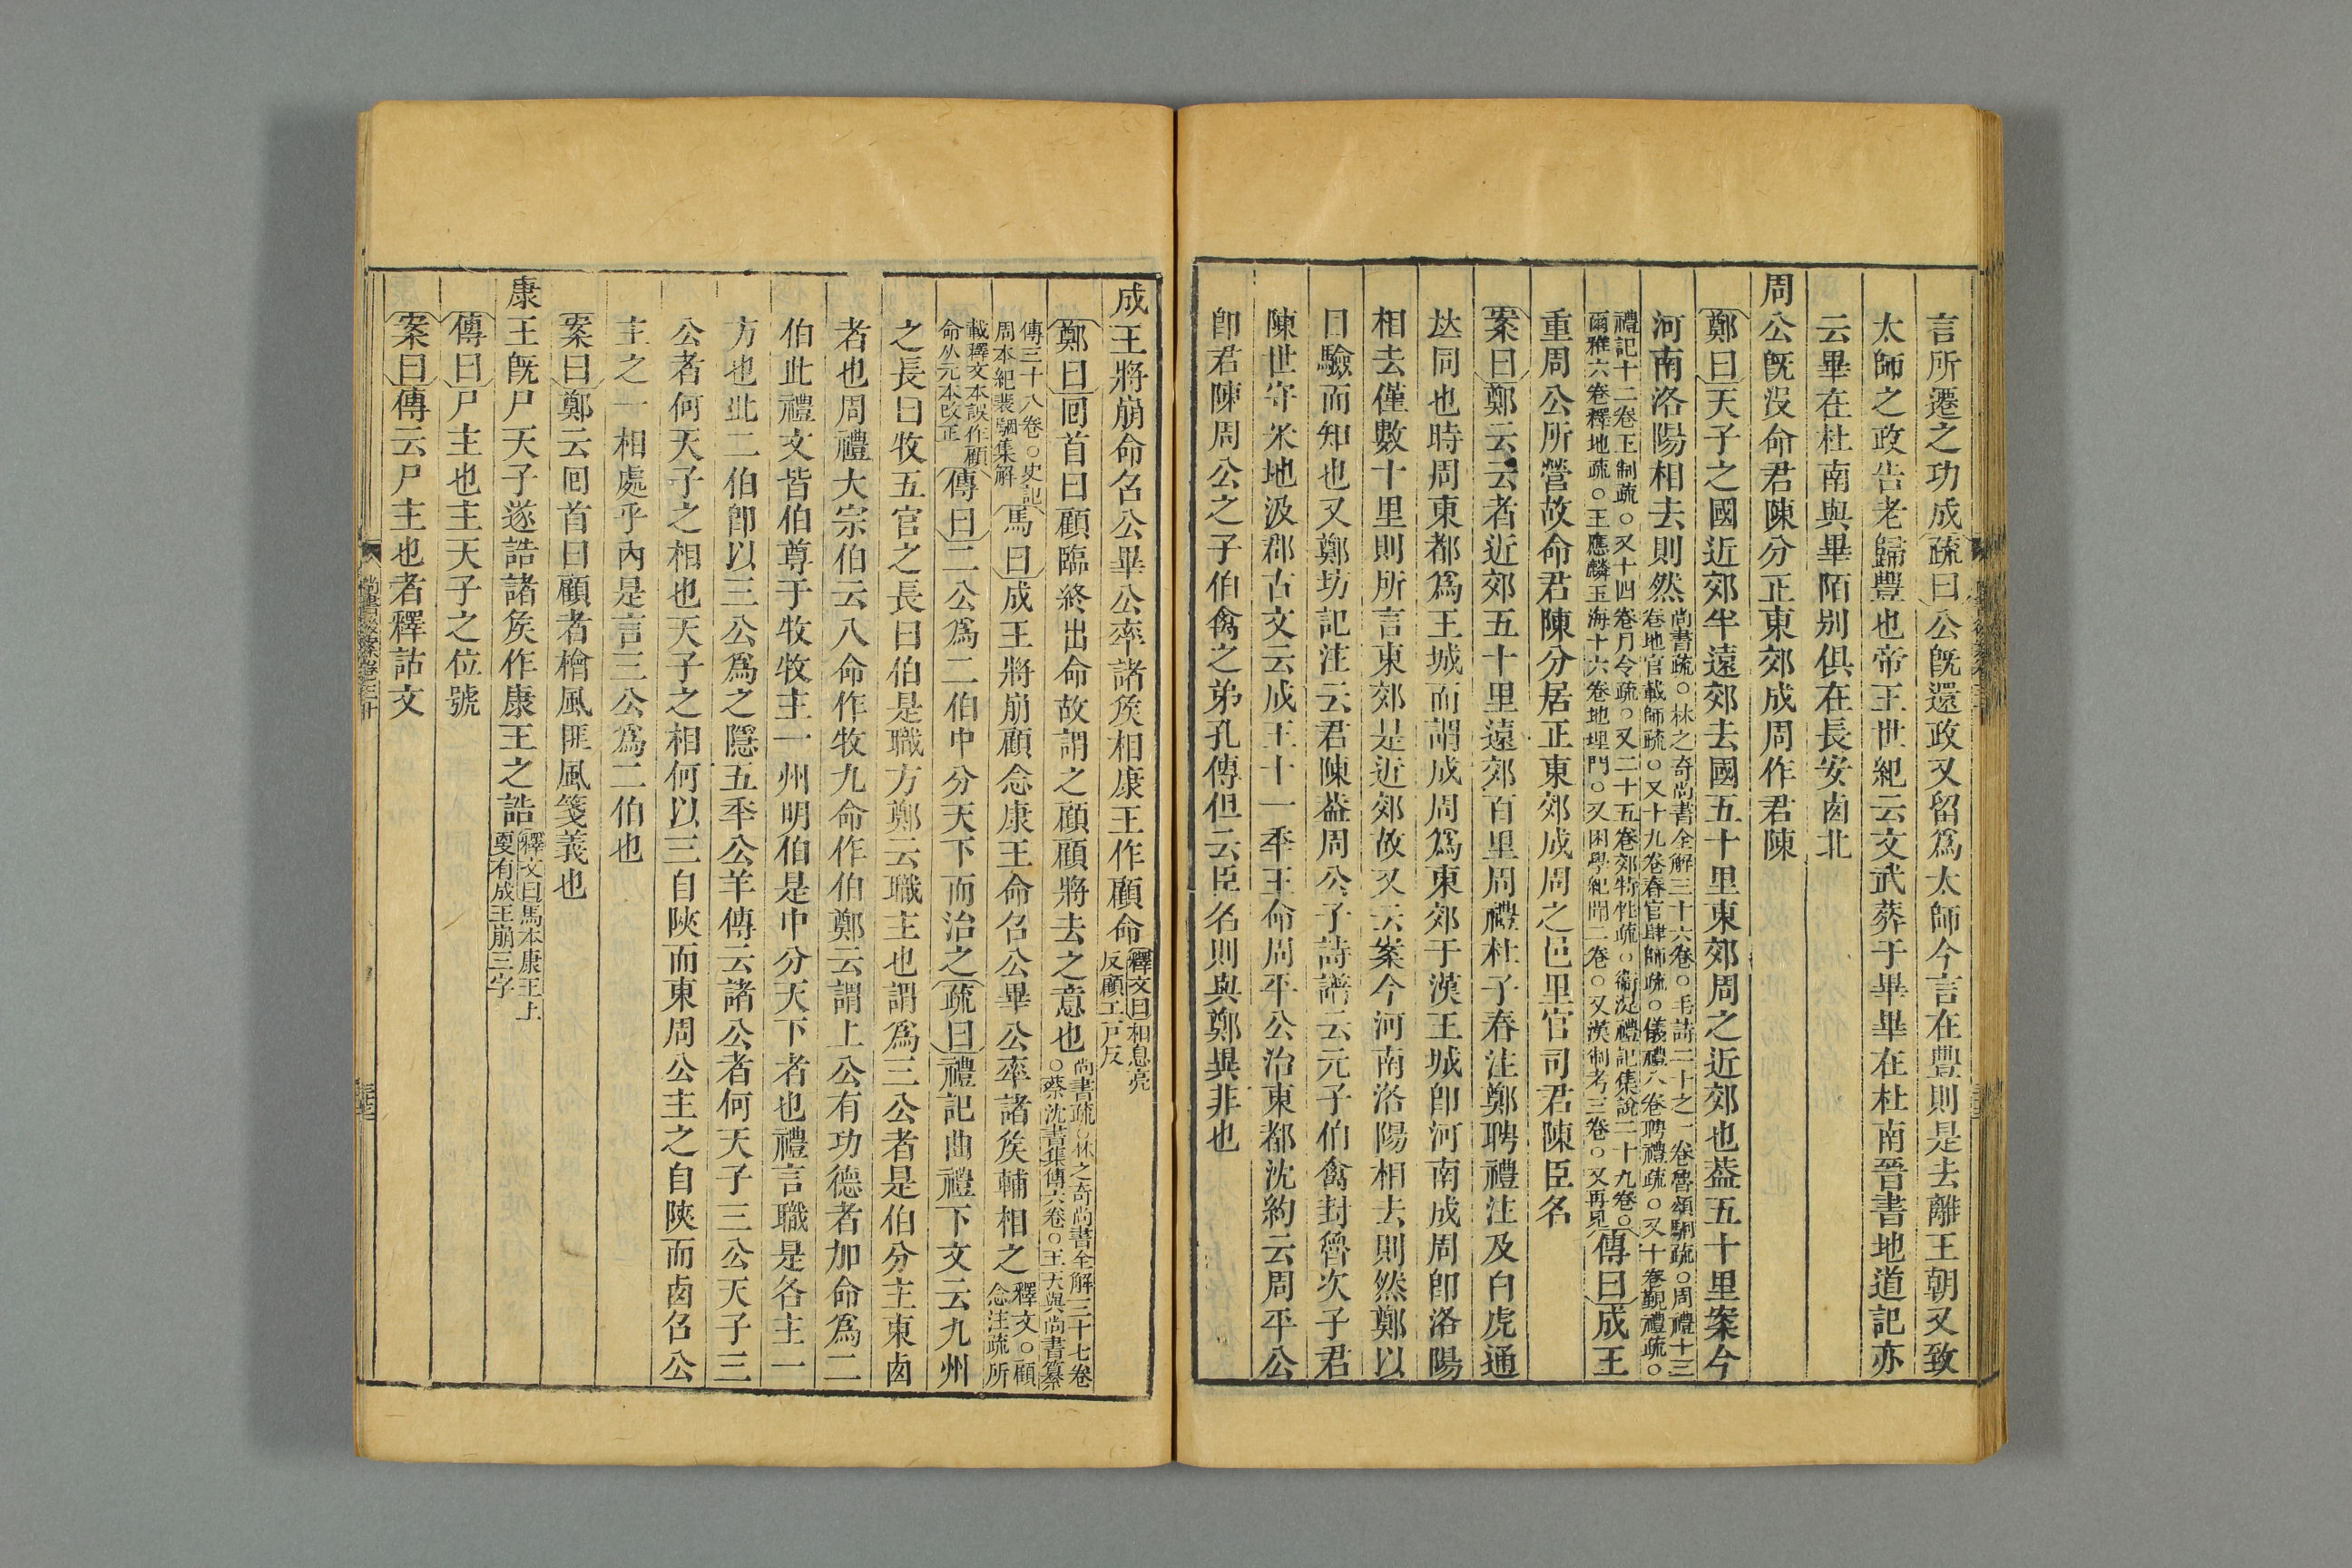 言所遷之功成疏曰公旣還政又留爲太師今言在豐則是去離王朝又致
太師之政告老歸豐也帝王世紀云文武葬于畢畢在杜南晉書地道記亦
云畢在杜南與畢陌別俱在長安鹵北
周公旣沒命君陳分正東郊成周作君陳
鄭曰天子之國近郊半遠郊去國五十里東郊周之近郊也葢五十里案今
河南洛陽相去則然尚書疏○林之奇尚書全解三十六卷○毛詩二十之一卷魯頌駉疏○周禮十三
卷地官載師疏○又十九卷春官肆師疏○儀禮八卷聘禮疏○又十卷覲禮疏○
禮記十二卷王制疏○又十四卷月令疏○又二十五卷郊特牲疏○衞湜禮記集說二十九卷○
爾雅六卷釋地疏○王應麟玉海十六卷地理門○又困學紀聞二卷○又漢制考三卷○又再見傳曰成王
重周公所營故命君陳分居正東郊成周之邑里官司君陳臣名
案曰鄭云云者近郊五十里遠郊百里周禮杜子春注鄭聘禮注及白虎通
竝同也時周東都爲王城而謂成周爲東郊于漢王城卽河南成周卽洛陽
相去僅數十里則所言東郊是近郊故又云案今河南洛陽相去則然鄭以
目驗而知也又鄭坊記注云君陳葢周公子詩譜云元子伯禽封魯次子君
陳世守采地汲郡古文云成王十一秊王命周平公治東都沈約云周平公
卽君陳周公之子伯禽之弟孔傳但云臣名則與鄭異非也
成王將崩命召公畢公率諸矦相康王作顧命釋文曰相息亮
反顧工戶反
鄭曰回首曰顧臨終出命故謂之顧顧將去之意也尚書疏○林之奇尚書全解三十七卷
○蔡沈書集傳六卷○王天與尚書纂
傳三十八卷○史記
周本紀裴駰集解馬曰成王將崩顧念康王命召公畢公率諸矦輔相之釋文○顧
念注疏所
載釋文本誤作顧
命从元本改正傳曰二公爲二伯中分天下而治之疏曰禮記曲禮下文云九州
之長曰牧五官之長曰伯是職方鄭云職主也謂爲三公者是伯分主東鹵
者也周禮大宗伯云八命作牧九命作伯鄭云謂上公有功德者加命爲二
伯此禮文皆伯尊于牧牧主一州明伯是中分天下者也禮言職是各主一
方也此二伯卽以三公爲之隱五秊公羊傳云諸公者何天子三公天子三
公者何天子之相也天子之相何以三自陝而東周公主之自陝而鹵召公
主之一相處乎內是言三公爲二伯也
案曰鄭云回首曰顧者檜風匪風箋義也
康王旣尸天子遂誥諸矦作康王之誥釋文曰馬本康王上
夏有成王崩三字
傳曰尸主也主天子之位號
案曰傳云尸主也者釋詁文
尚書後案卷三十